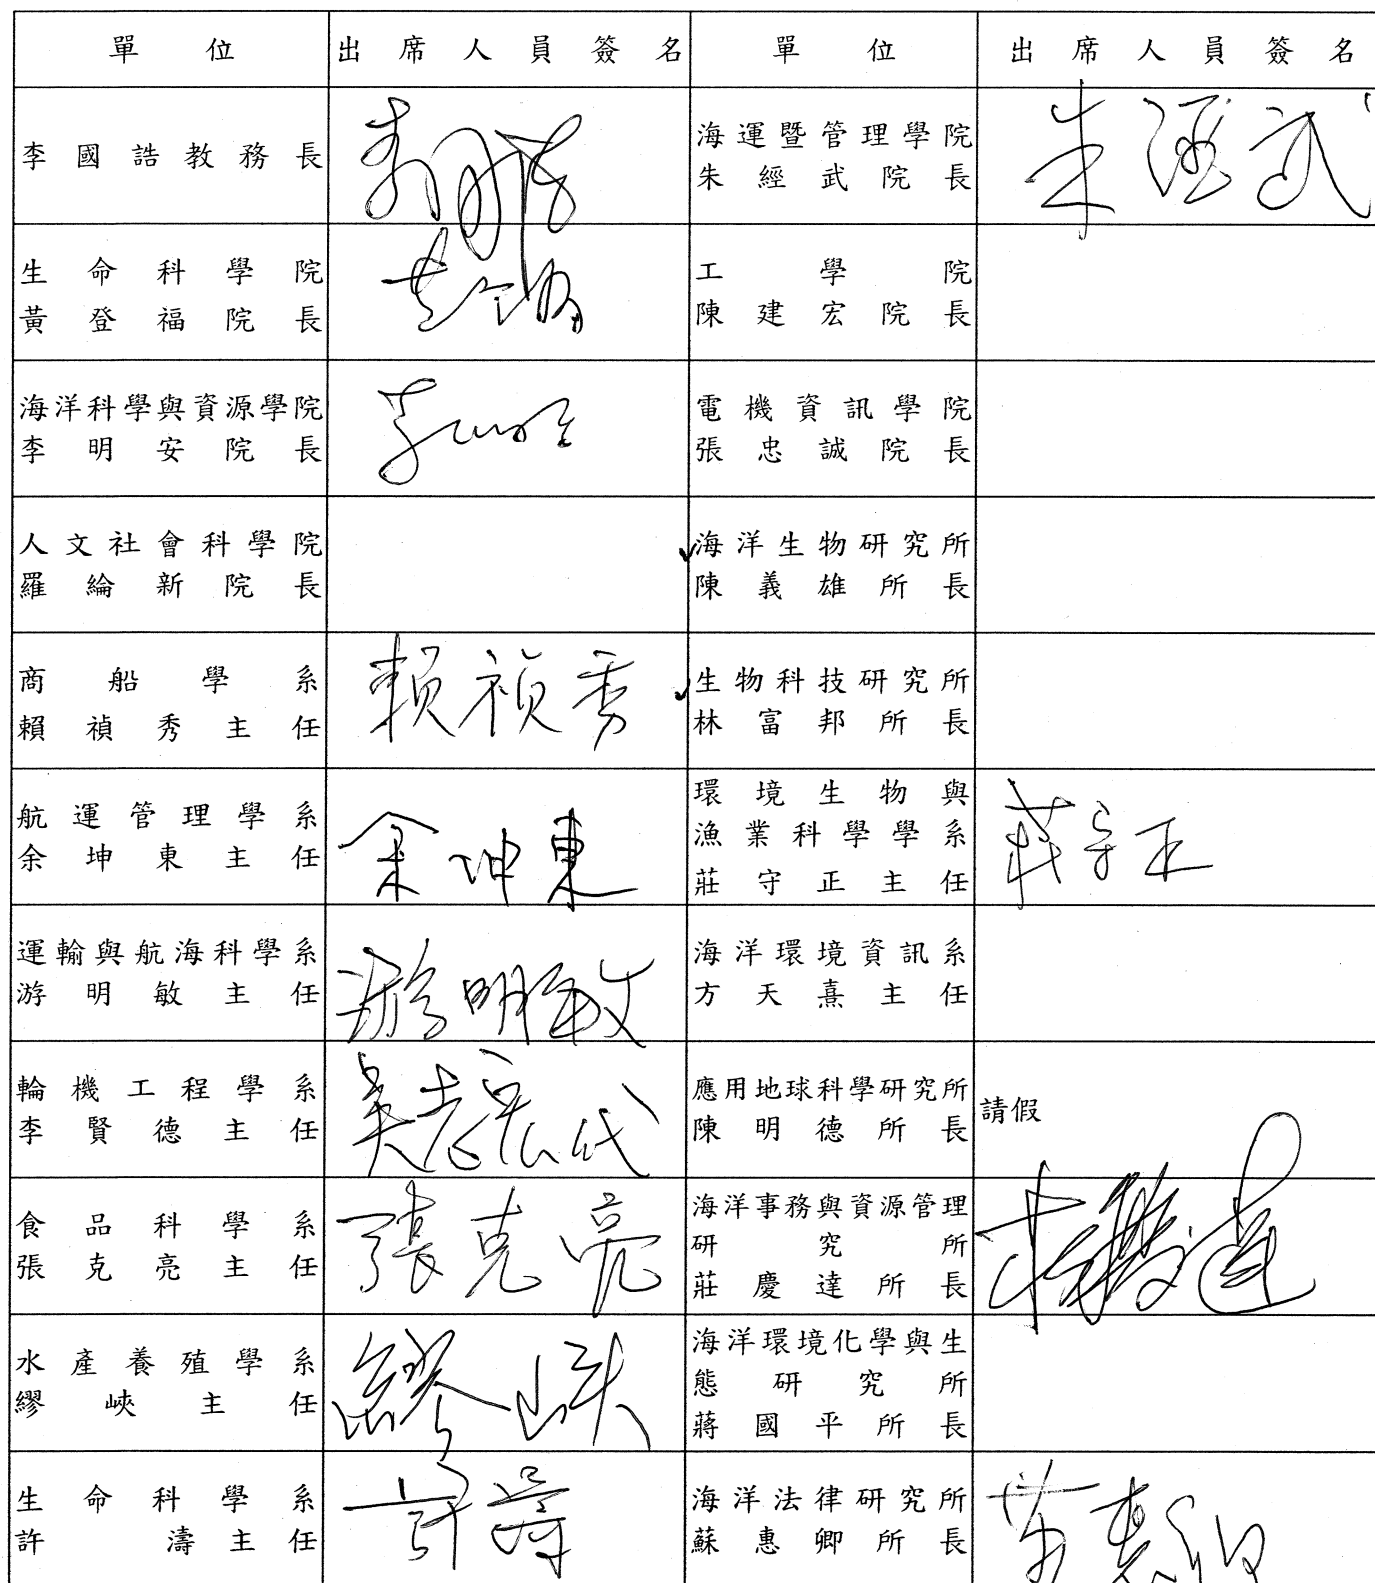 單位 出席人員簽名 單位 出席人員簽名
李國誥教務長
海運暨管理學院
朱經武院長
朱經武
生命科學院
黃登福院長
工學院
陳建宏院長
海洋科學與資源學院
李明安院長
電機資訊學院
張忠誠院長
人文社會科學院
羅綸新院長
海洋生物研究所
陳義雄所長
商船學系
賴禎秀主任
賴禎秀
生物科技研究所
林富邦所長
航運管理學系
余坤東主任
余坤東
環境生物與
漁業科學學系
莊守正主任
莊守正
運輸與航海科學系
游明敏主任
游明敏
海洋環境資訊系
方天熹主任
輪機工程學系
李賢德主任
應用地球科學研究所
陳明德所長
請假
食品科學系
張克亮主任
張克亮
海洋事務與資源管理
研究所
莊慶達所長
水產養殖學系
繆峽主任
繆峽
海洋環境化學與生
態研究所
蔣國平所長
生命科學系
許濤主任
許濤
海洋法律研究所
蘇惠卿所長